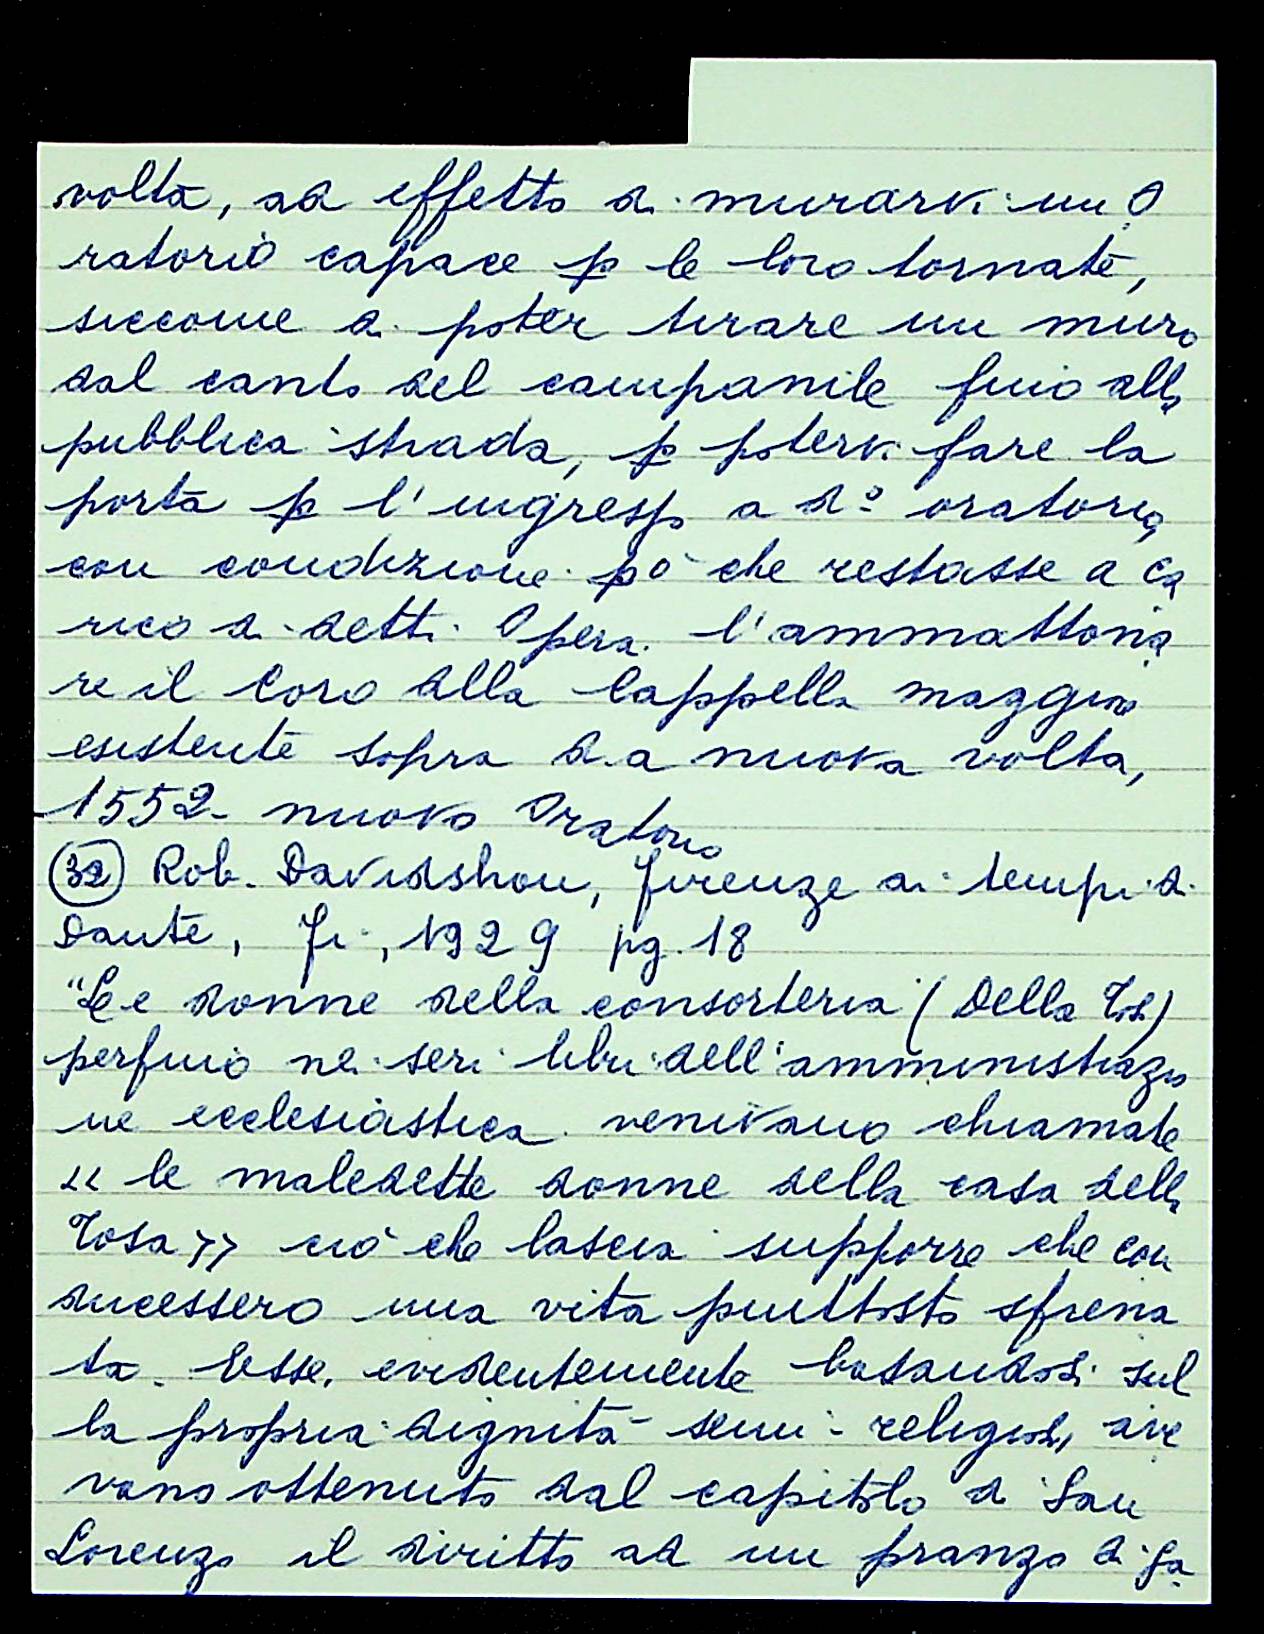 volta, ad effetto di murarvi un O
ratorio capace p le loro tornate,
siccome di poter tirare un muro
dal canto del campanile fino alla
pubblica strada, p potervi fare la
porta p l'ingresso a dº oratorio,
con condizione pò che restasse a ca
rico di detti Operai l'ammattona
re il Coro alla Cappella maggiore
esistente sopra d.a nuova volta,
1552 - nuovo Oratorio
(32) Rob. Davidshon, Firenze ai tempi di
Dante, Fi, 1929 pg. 18
"Le donne della consorteria (Della Tosa)
perfino nei seri libri dell'amministrazio
ne ecclesiastica venivano chiamate
<< le maledette donne della casa della
Tosa >> ciò che lascia supporre che con
ducessero una vita piuttosto sfrena
ta. Esse, evidentemente basandosi sul
la propria dignità semi-religiosa, ave
vano ottenuto dal capitolo di San
Lorenzo il diritto ad un pranzo di ga